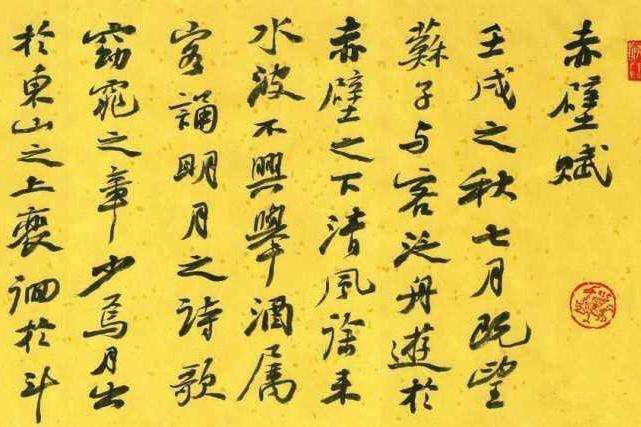 赤壁賦
壬戌之秋七月既望
蘇子与客泛舟遊於
赤壁之下清風徐来
水波不興舉酒属
客誦明月之诗歌
窈窕之章少焉月出
於東山之上裵徊於斗